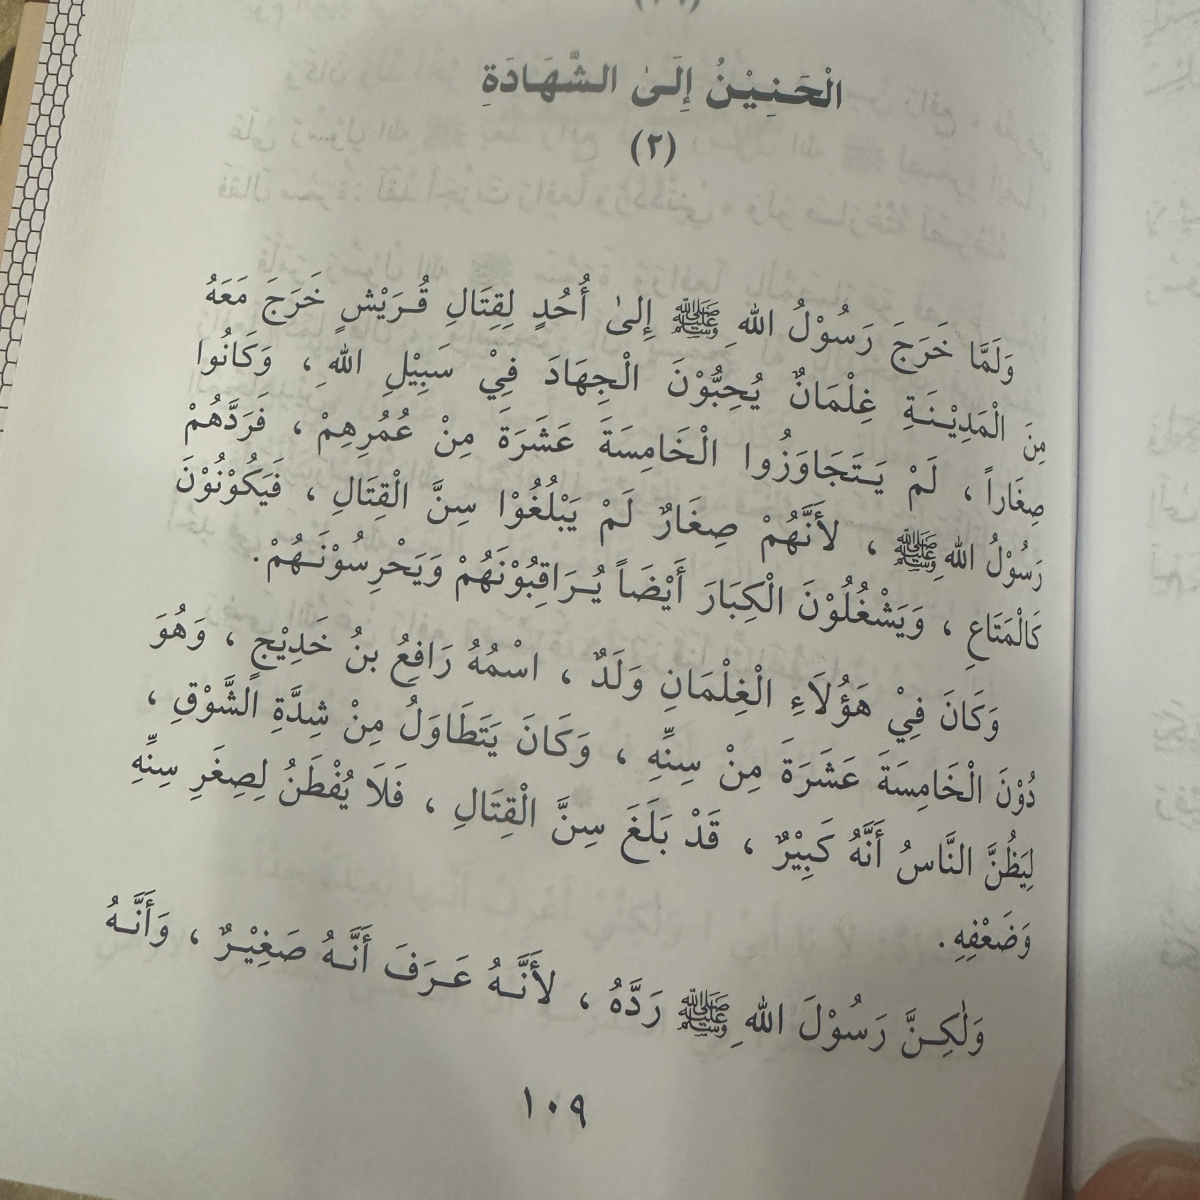 الْحَنِيْنُ إِلَىٰ الشَّهَادَةِ
(٢)
وَلَمَّا خَرَجَ رَسُوْلُ اللهِ ﷺ إِلىٰ أُحُدٍ لِقِتَالِ قُرَيْشٍ خَرَجَ مَعَهُ
مِنَ الْمَدِيْنَةِ غِلْمَانٌ يُحِبُّوْنَ الْجِهَادَ فِيْ سَبِيْلِ اللهِ ، وَكَانُوا
صِغَاراً ، لَمْ يَتَجَاوَزُوا الْخَامِسَةَ عَشَرَةَ مِنْ عُمُرِهِمْ ، فَرَدَّهُمْ
رَسُوْلُ اللهِ ﷺ ، لأَنَّهُمْ صِغَارٌ لَمْ يَبْلُغُوْا سِنَّ الْقِتَالِ ، فَيَكُوْنُوْنَ
كَالْمَتَاعِ ، وَيَشْغُلُوْنَ الْكِبَارَ أَيْضَاً يُرَاقِبُوْنَهُمْ وَيَحْرِسُوْنَهُمْ.
وَكَانَ فِيْ هَؤُلَاءِ الْغِلْمَانِ وَلَدٌ ، اسْمُهُ رَافِعُ بنُ خَدِيْجٍ ، وَهُوَ
دُوْنَ الْخَامِسَةَ عَشَرَةَ مِنْ سِنِّهِ ، وَكَانَ يَتَطَاوَلُ مِنْ شِدَّةِ الشَّوْقِ ،
لِيَظُنَّ النَّاسُ أَنَّهُ كَبِيْرٌ ، قَدْ بَلَغَ سِنَّ الْقِتَالِ ، فَلَا يُفْطَنُ لِصِغَرِ سِنِّهِ
وَضَعْفِهِ.
وَلٰكِنَّ رَسُوْلَ اللهِ ﷺ رَدَّهُ ، لأَنَّهُ عَرَفَ أَنَّهُ صَغِيْرٌ ، وَأَنَّهُ
١٠٩